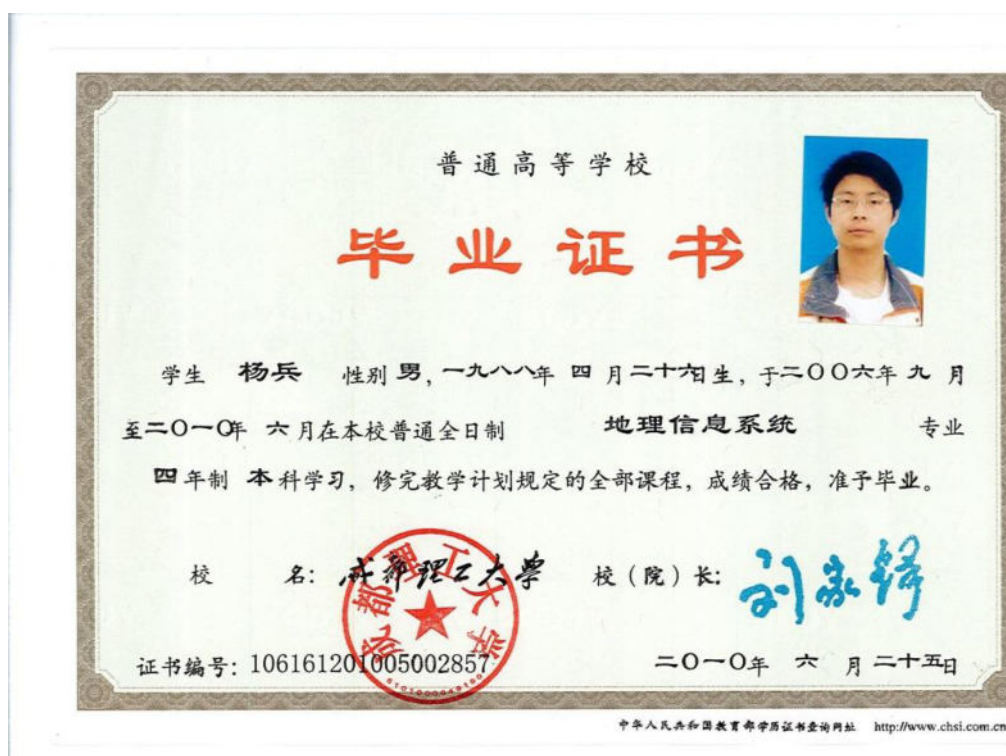 普通高等学校
毕业证书
学生 杨兵 性别 男,一九八八年 四 月二十六日生,于二〇〇六年 九 月
至二〇一〇年 六 月在本校普通全日制 地理信息系统 专业
四年制 本科学习,修完教学计划规定的全部课程,成绩合格,准予毕业。
校 名: 成都理工大学 校(院)长: 刘家铎
成都理工大学
证书编号: 106161201005002857 二〇一〇年 六 月 二十五日
中华人民共和国教育部学历证书查询网址 http://www.chsi.com.cn